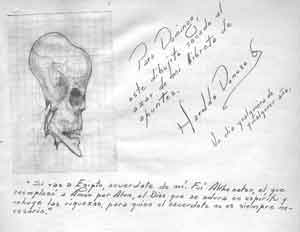 Para Domingo,
este dibujito sacado al
azar de mi libreta de
apuntes.
Haroldo
Un día cualquiera de
cualquier año.
"Si vas a Egipto, acuérdate de mí. Fuí Akhenaton, el que
reemplazó a Amón por Aton, el Dios que se adora en espíritu y
rehuye las riquezas, para quien el sacerdote no es siempre ne-
cesario."